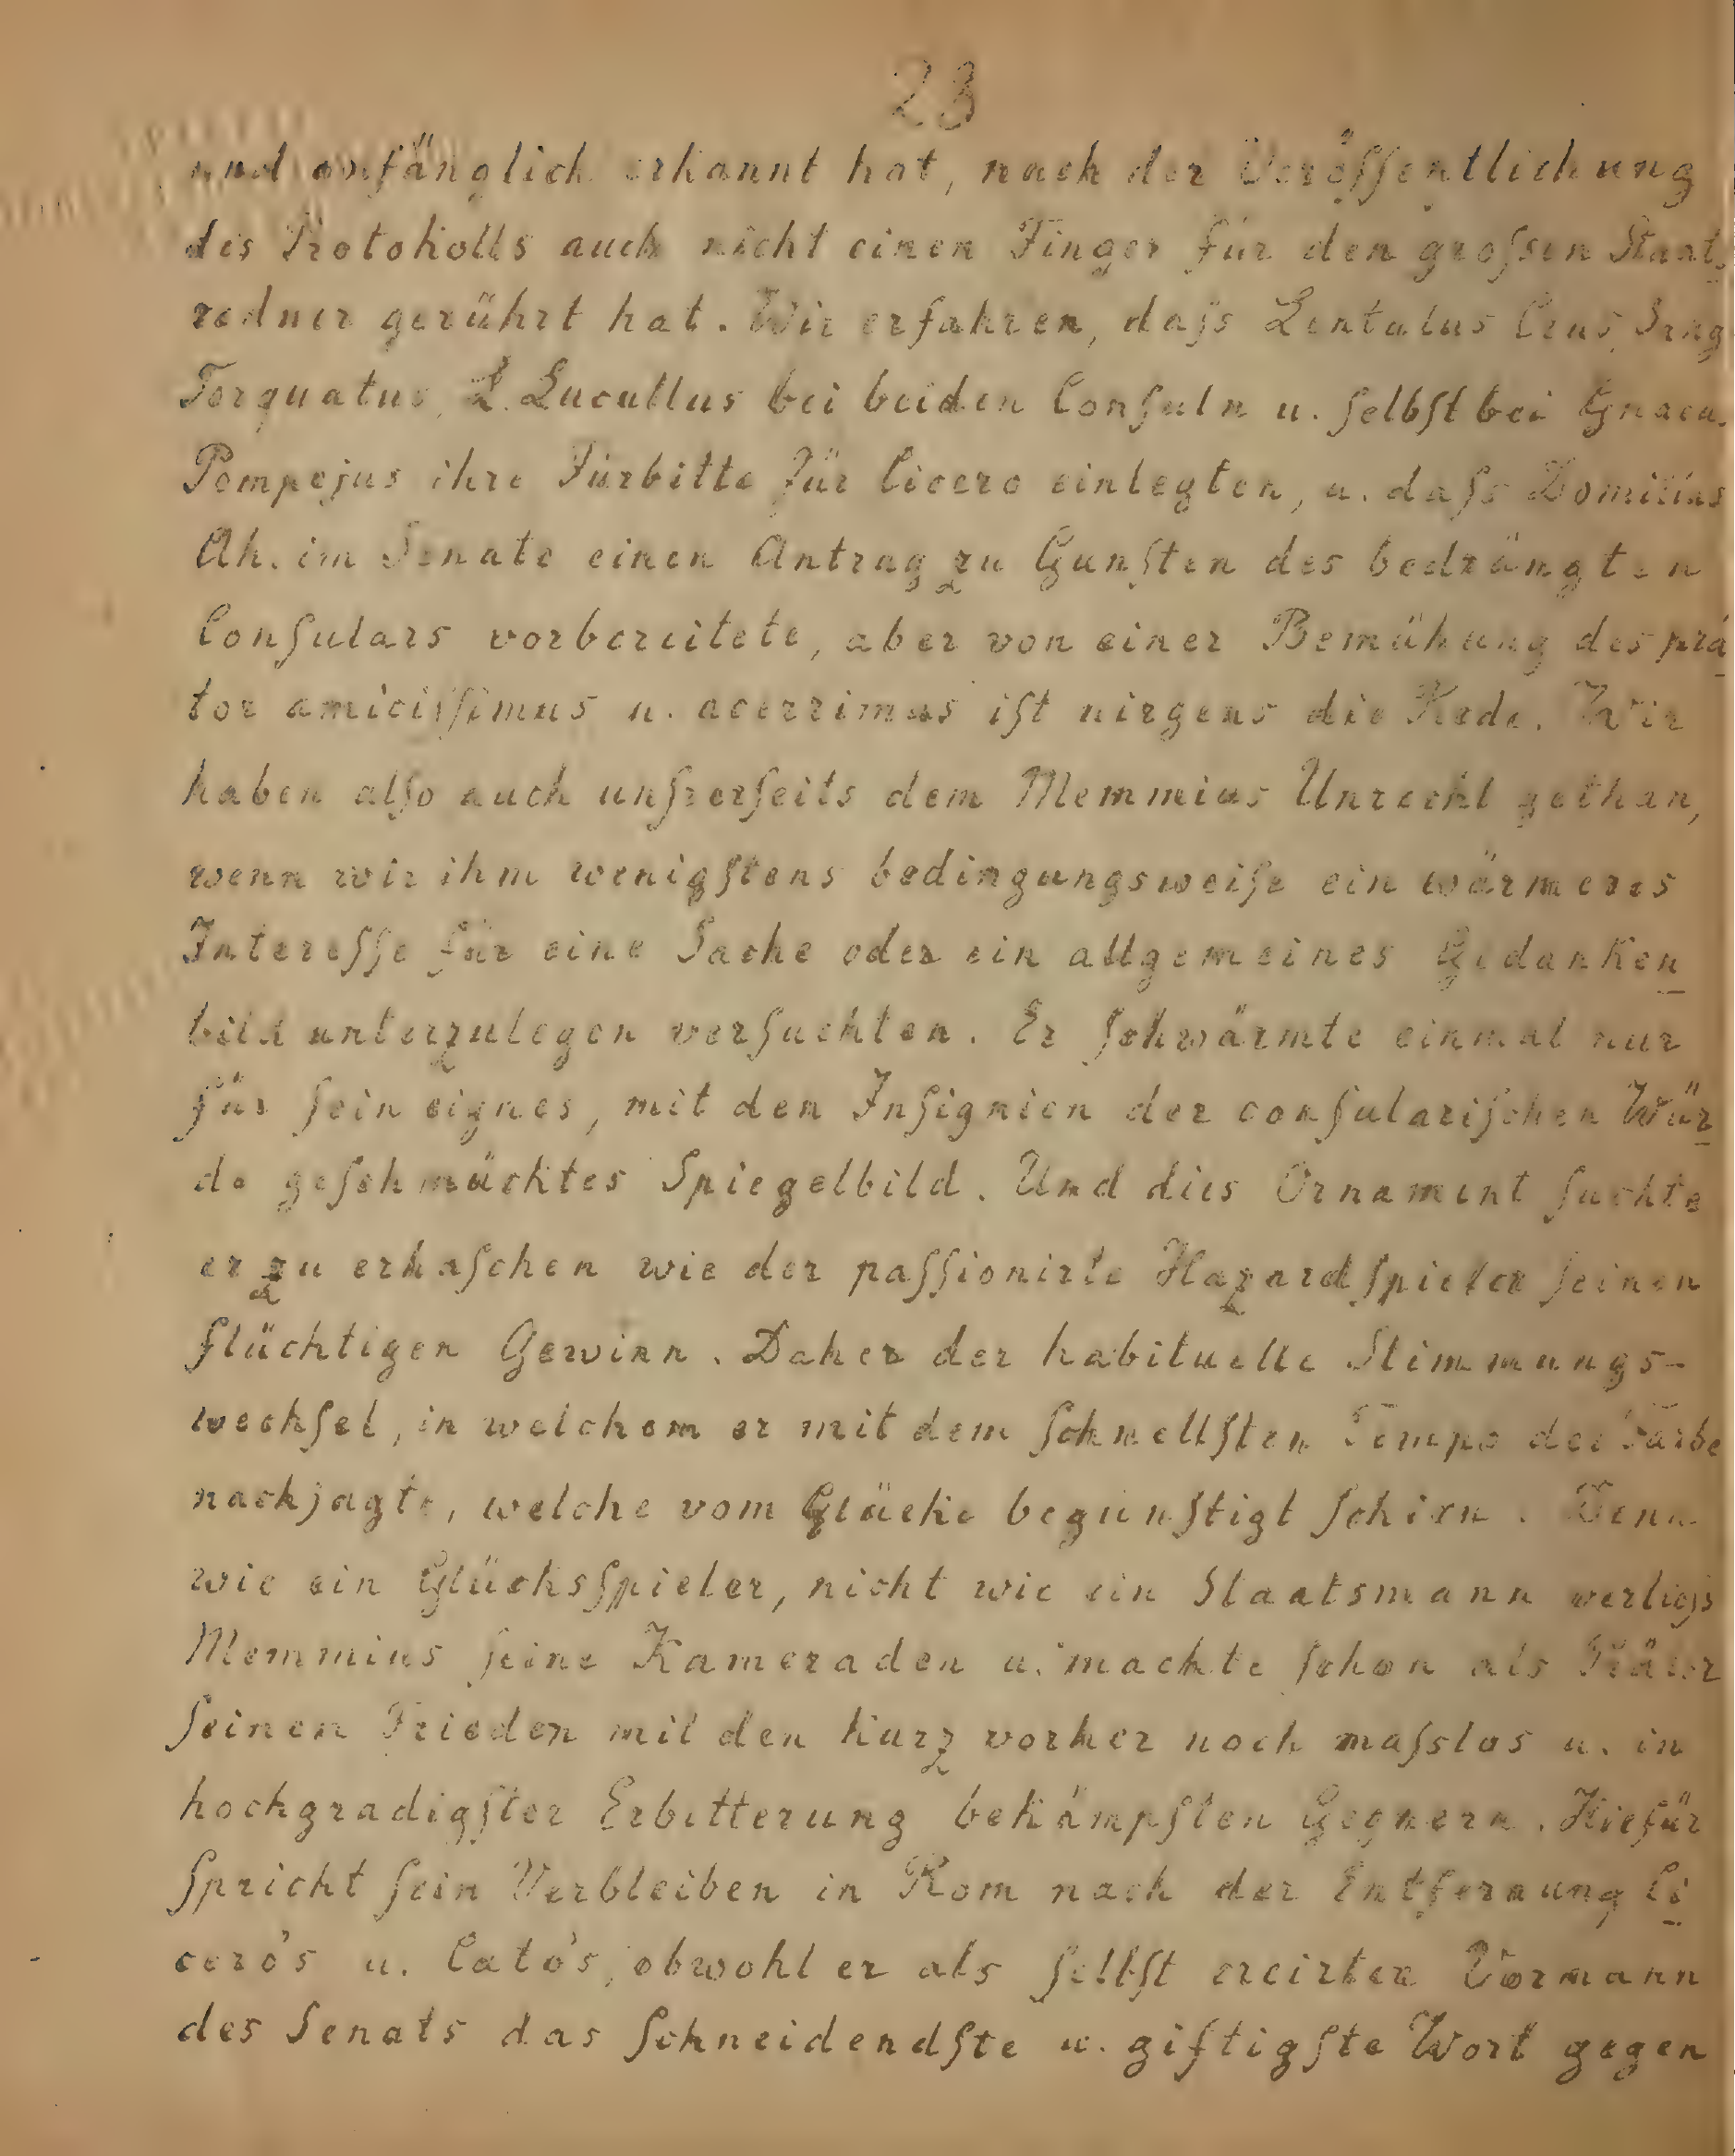 23
und anfänglich erkannt hat, nach der Veröffentlichung
des Protokolls auch nicht einen Finger für den groſsen Staats
redner gerührt hat. Wir erfahren, daſs Lentulus Crus, Sang
Torquatus, L. Lucullus bei beiden Conſuln u. ſelbſt bei Gnaeu.
Pompejus ihre Fürbitte für Cicero einlegten, u. daſs Domitius
Ah. im Senate einen Antrag zu Gunſten des bedrängten
Conſulars vorbereitete, aber von einer Bemühung des prä
tor amiciſſimus u. acerrimus iſt nirgens die Rede. Wir
haben alſo auch unſrerſeits dem Memmius Unrecht gethan,
wenn wir ihm wenigſtens bedingungsweiſe ein wärmeres
Intereſſe für eine Sache oder ein allgemeines Gedanken
bild unterzulegen verſuchten. Er ſchwärmte einmal nur
für ſein eignes, mit den Inſignien der conſulariſchen Wür
de geſchmücktes Spiegelbild. Und dies Ornament ſuchte
er zu erhaſchen wie der paſſionirte Hazardſpieler ſeinen
flüchtigen Gewinn. Daher der habituelle Stimmungs-
wechſel, in welchem er mit dem ſchnellſten Tempo der Farbe
nachjagte, welche vom Glücke begünſtigt ſchien. Denn
wie ein Glücksſpieler, nicht wie ein Staatsmann verlieſs
Memmius ſeine Kameraden u. machte ſchon als Prätor
ſeinen Frieden mit den kurz vorher noch maſslos u. in
hochgradigſter Erbitterung bekämpften Gegnern. Hiefür
ſpricht ſein Verbleiben in Rom nach der Entfernung Ci
cero's u. Cato's, obwohl er als ſelbſt creirter Vormann
des Senats das ſchneidendſte u. giftigſte Wort gegen